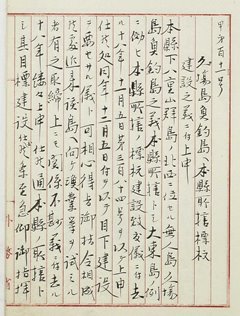 甲第百十一号
久場島魚釣島ヘ本県所轄標杭
建設之義ニ付上申
本県下八重山群島ノ北西ニ位セル無人島久場
島魚釣島之義本県所轄トシ大東島ノ例
ニ倣ヒ本県所轄ノ標杭建設致度儀ニ付去
ル十八年十一月五日第三百八十四号ヲ以テ上申
仕候処同年十二月五日付ヲ以テ目下建設
ヲ要セサル儀ト可相心得旨御指令相成
候処近来該島ヘ向ケ漁業等ヲ試ミル
者有之取締上ニモ関係不尠義ニ付去ル
十八年縷々上申仕候通本県ノ所轄トシ
其目標建設仕度候条至急仰御指揮
外務省